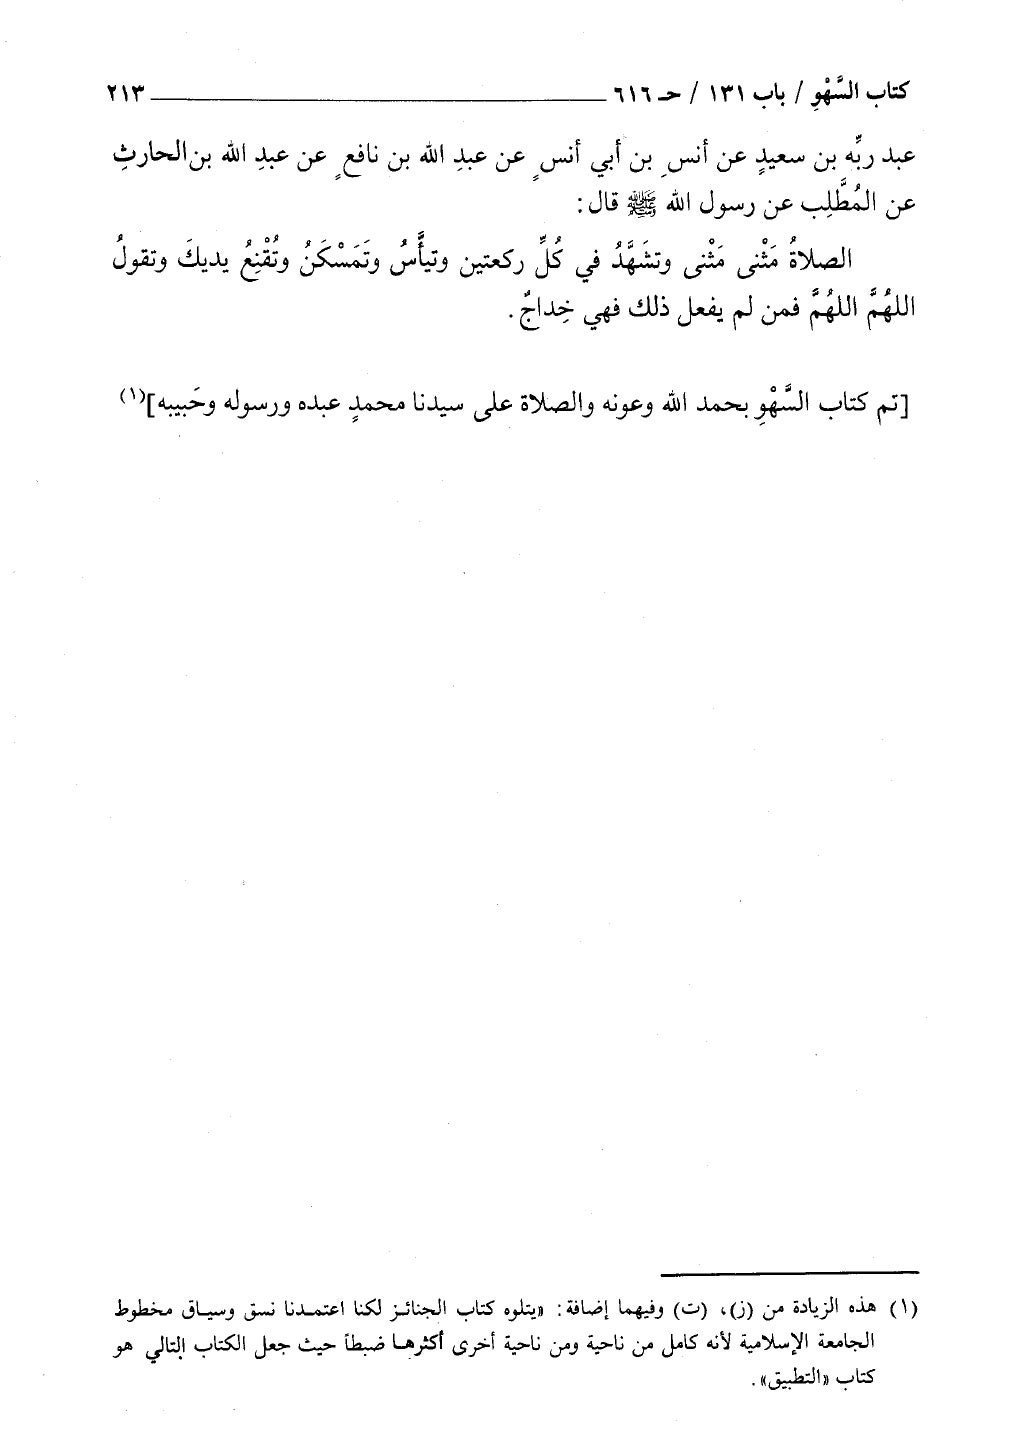 كتاب السَّهْوِ / باب ١٣١ / حـ ٦١٦ ٢١٣
عبد ربِّه بن سعيدٍ عن أنسِ بن أبي أنسٍ عن عبدِ الله بن نافعٍ عن عبدِ الله بن الحارثِ
عن المُطَّلِب عن رسول الله ﷺ قال:
الصلاةُ مَثْنى مَثْنى وتشَهَّدُ في كُلِّ ركعتين وتيأَّسُ وتَمَسْكَنُ وتُقْنِعُ يديكَ وتقولُ
اللهُمَّ اللهُمَّ فمن لم يفعل ذلك فهي خِداجٌ.
[تم كتاب السَّهْوِ بحمد الله وعونه والصلاة على سيدنا محمدٍ عبده ورسوله وحَبيبه](١)
(١) هذه الزيادة من (ز)، (ت) وفيهما إضافة: «يتلوه كتاب الجنائز لكنا اعتمدنا نسق وسياق مخطوط
الجامعة الإسلامية لأنه كامل من ناحية ومن ناحية أخرى أكثرها ضبطاً حيث جعل الكتاب التالي هو
كتاب «التطبيق».